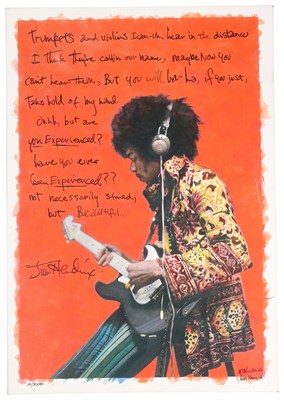 Trumpets and violins I can uh, hear in the distance
I think they're callin our name, maybe Now you
can't hear them, But you will ha-ha, if you just,
take hold of my hand.
Ohhh, but are
you Experienced?
have you ever
Been Experienced??
not necessarily stoned,
but Beautiful
Jimi Hendrix